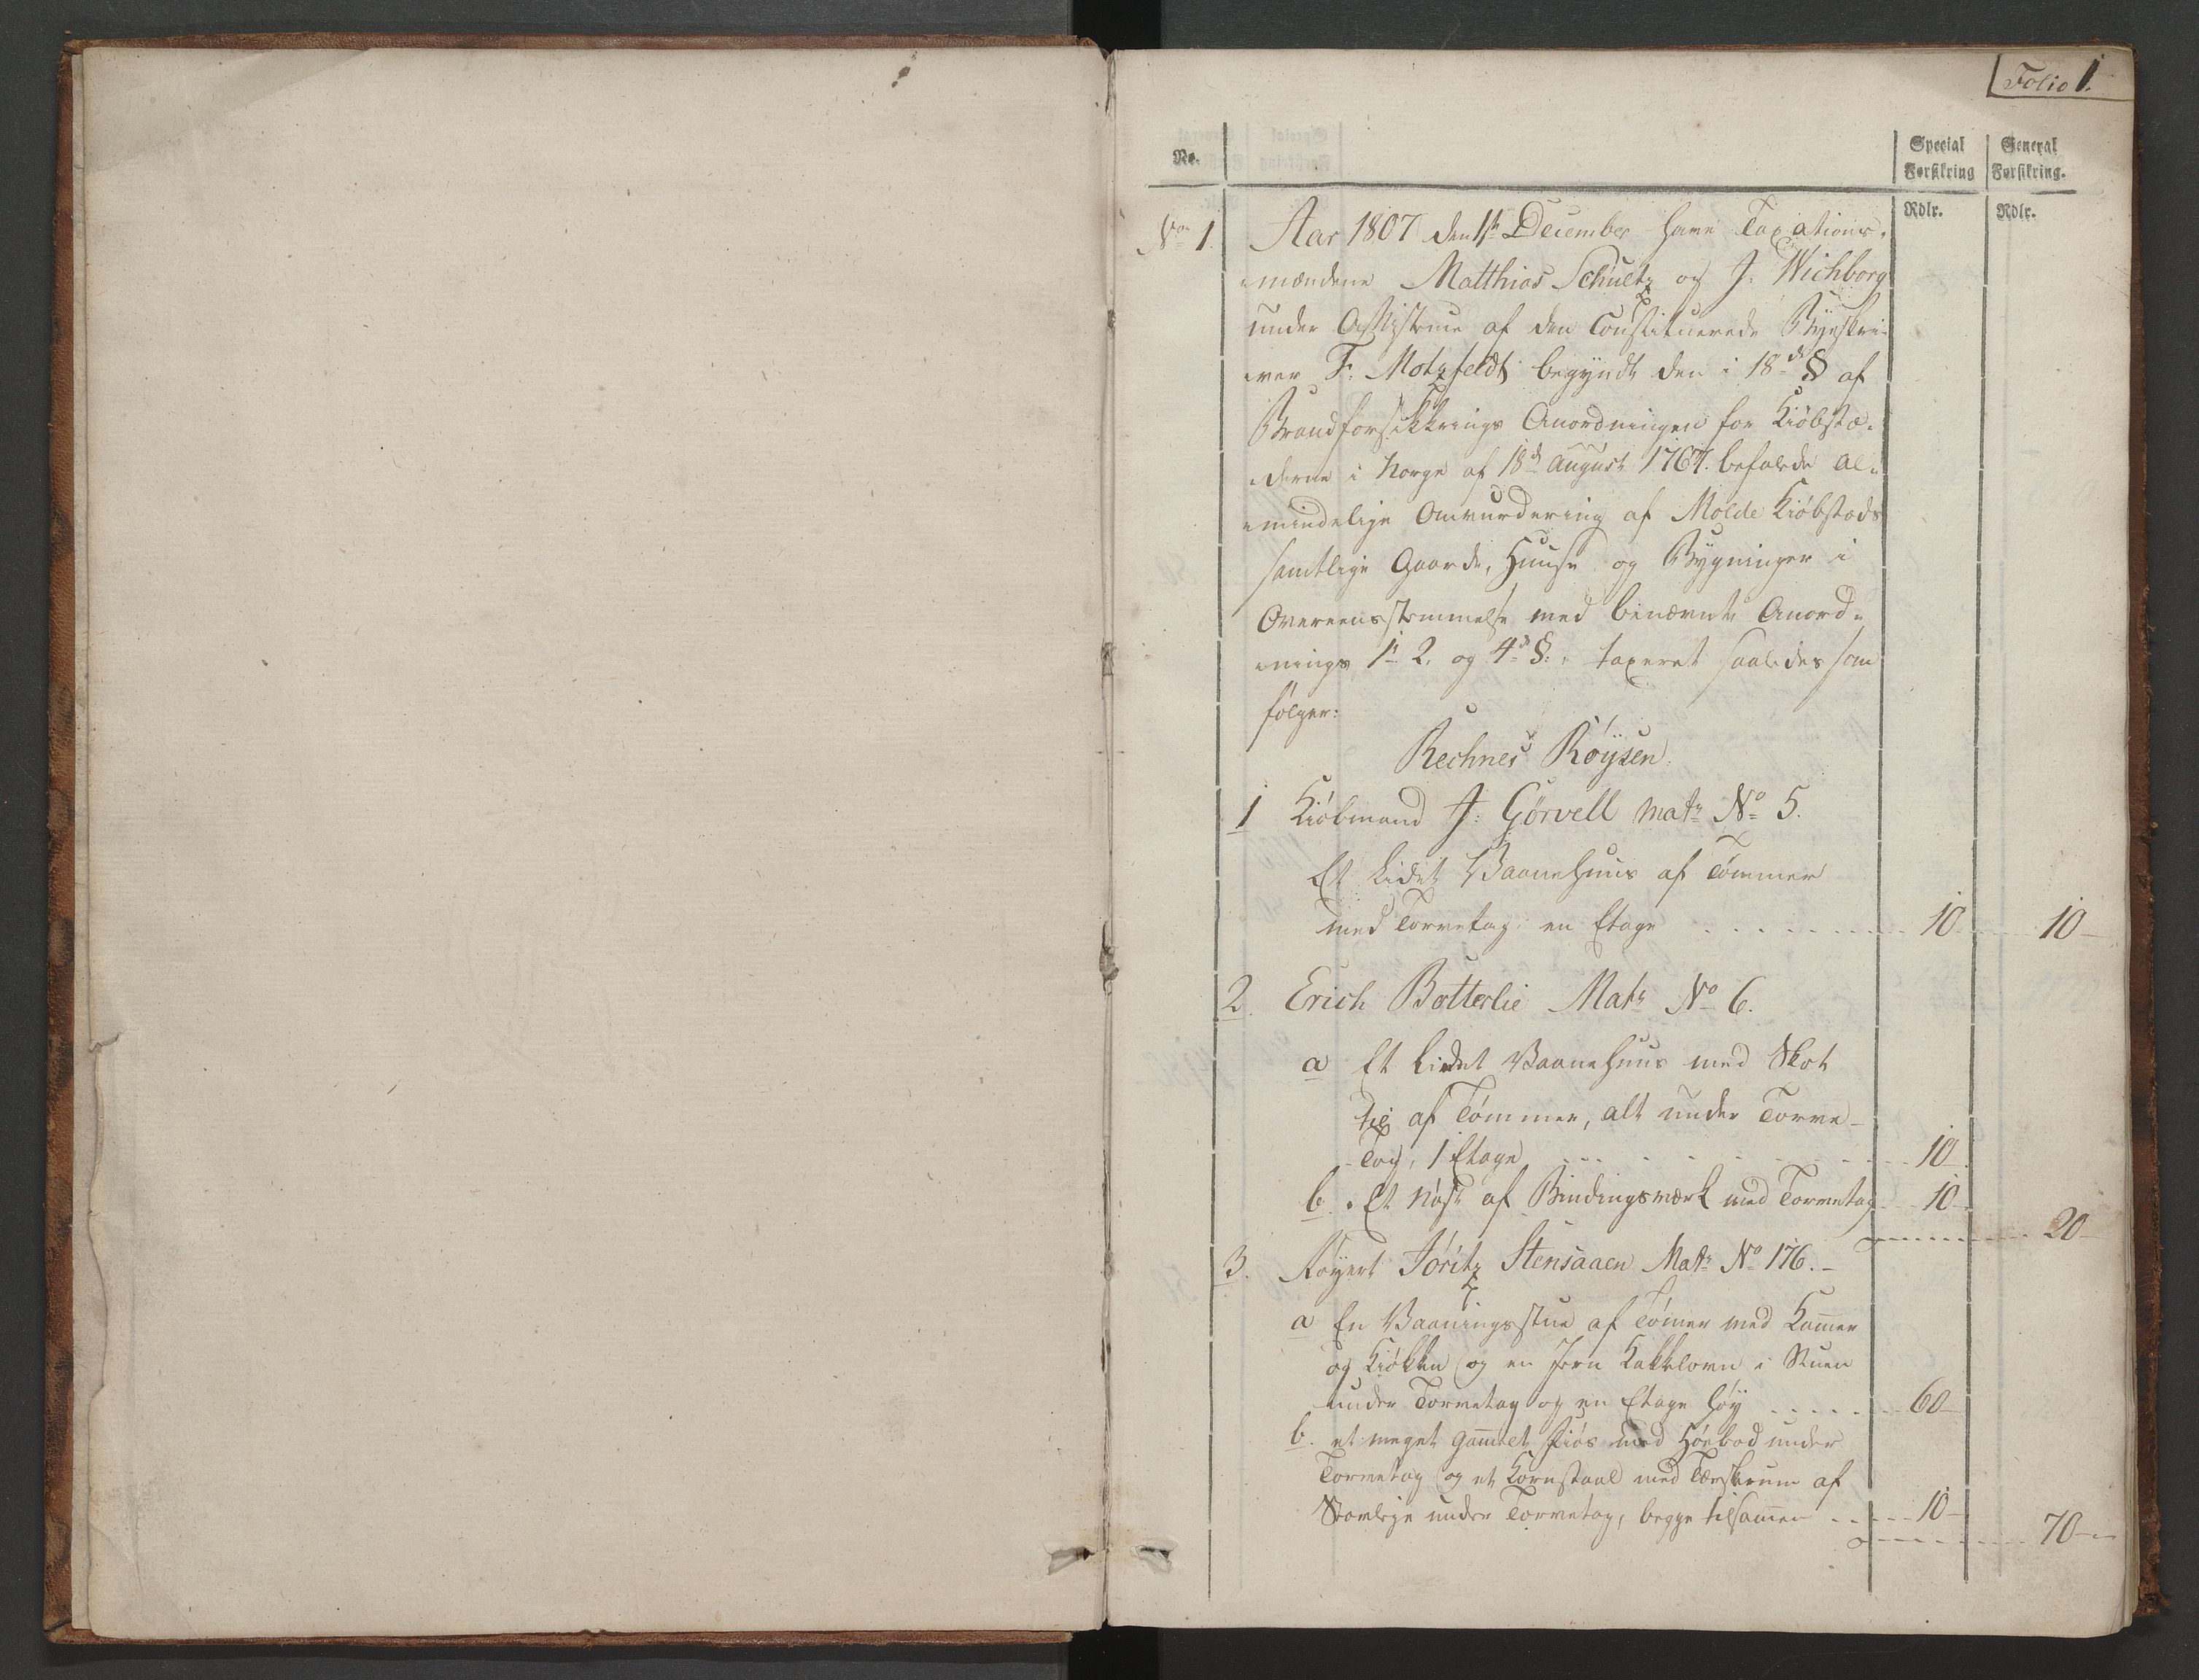 Folio 1.
No.
Special Forsikring
General Forsikring.
Rdlr.
Rdlr.
No 1. Aar 1807 den 1ste December have Taxations-
mændene Matthias Schultz og J: Wichborg
under Assistence af den Constituerede Byeskri-
ver F: Motzfeldt begyndt den i 18de § af
Brandforsikkrings Anordningen for Kiøbstæ-
derne i Norge af 18de August 1767. befalede al-
mindelige Omvurdering af Molde Kiøbstæds
samtlige Gaarde, Huuse og Bygninger i
Overeensstemmelse med benævnte Anord-
nings 1ste 2. og 4de §: taxeret saaledes som
følger:
Rechnes Røysen.
1 Kiøbmand J: Gørvell Matr No 5.
Et Lidet Vaanehuus af Tømmer
med Torvetag en Etage 10 10
2. Erich Botterlie Matr No 6.
a Et Lidet Vaanehuus med Skot
til af Tømmer, alt under Torve-
Tag, 1 Etage 10
b. Et Nøst af Bindingsværk med Torvetag 10
20
3. Føyert Joritz Stensaaen Matr No 176.
a En Vaaningsstue af Tømer med Kamer
og Kiøkken og en Jern Kakkelovn i Stuen
under Torvetag og en Etage høy 60
b. et meget gamelt Fiøs med Høebod under
Torvetag og et Kornstaal med Tærskerum af
Stavleje under Torvetag, begge tilsamen 10
70